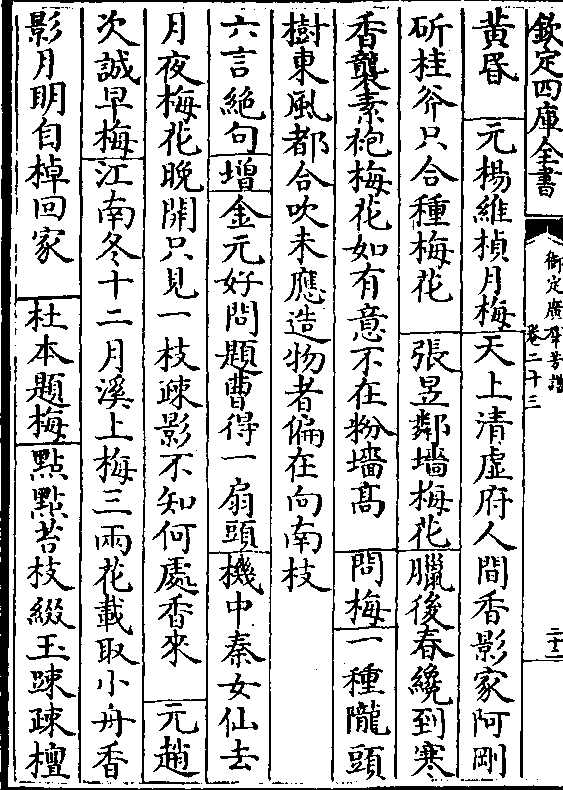 欽定四庫全書
御定廣羣芳譜
卷二十三
二十二
黃昏 元楊維楨月梅天上清虛府人間香影家阿剛
斫桂斧只合種梅花 張昱鄰墻梅花臘後春纔到寒
香襲素袍梅花如有意不在粉墻髙 問梅一種隴頭
樹東風都合吹未應造物者偏在向南枝
六言絶句增金元好問題曹得一扇頭機中秦女仙去
月夜梅花晚開只見一枝疎影不知何處香來 元趙
次誠早梅江南冬十二月溪上梅三兩花載取小舟香
影月明自棹回家 杜本題梅點點苔枝綴玉疎疎檀